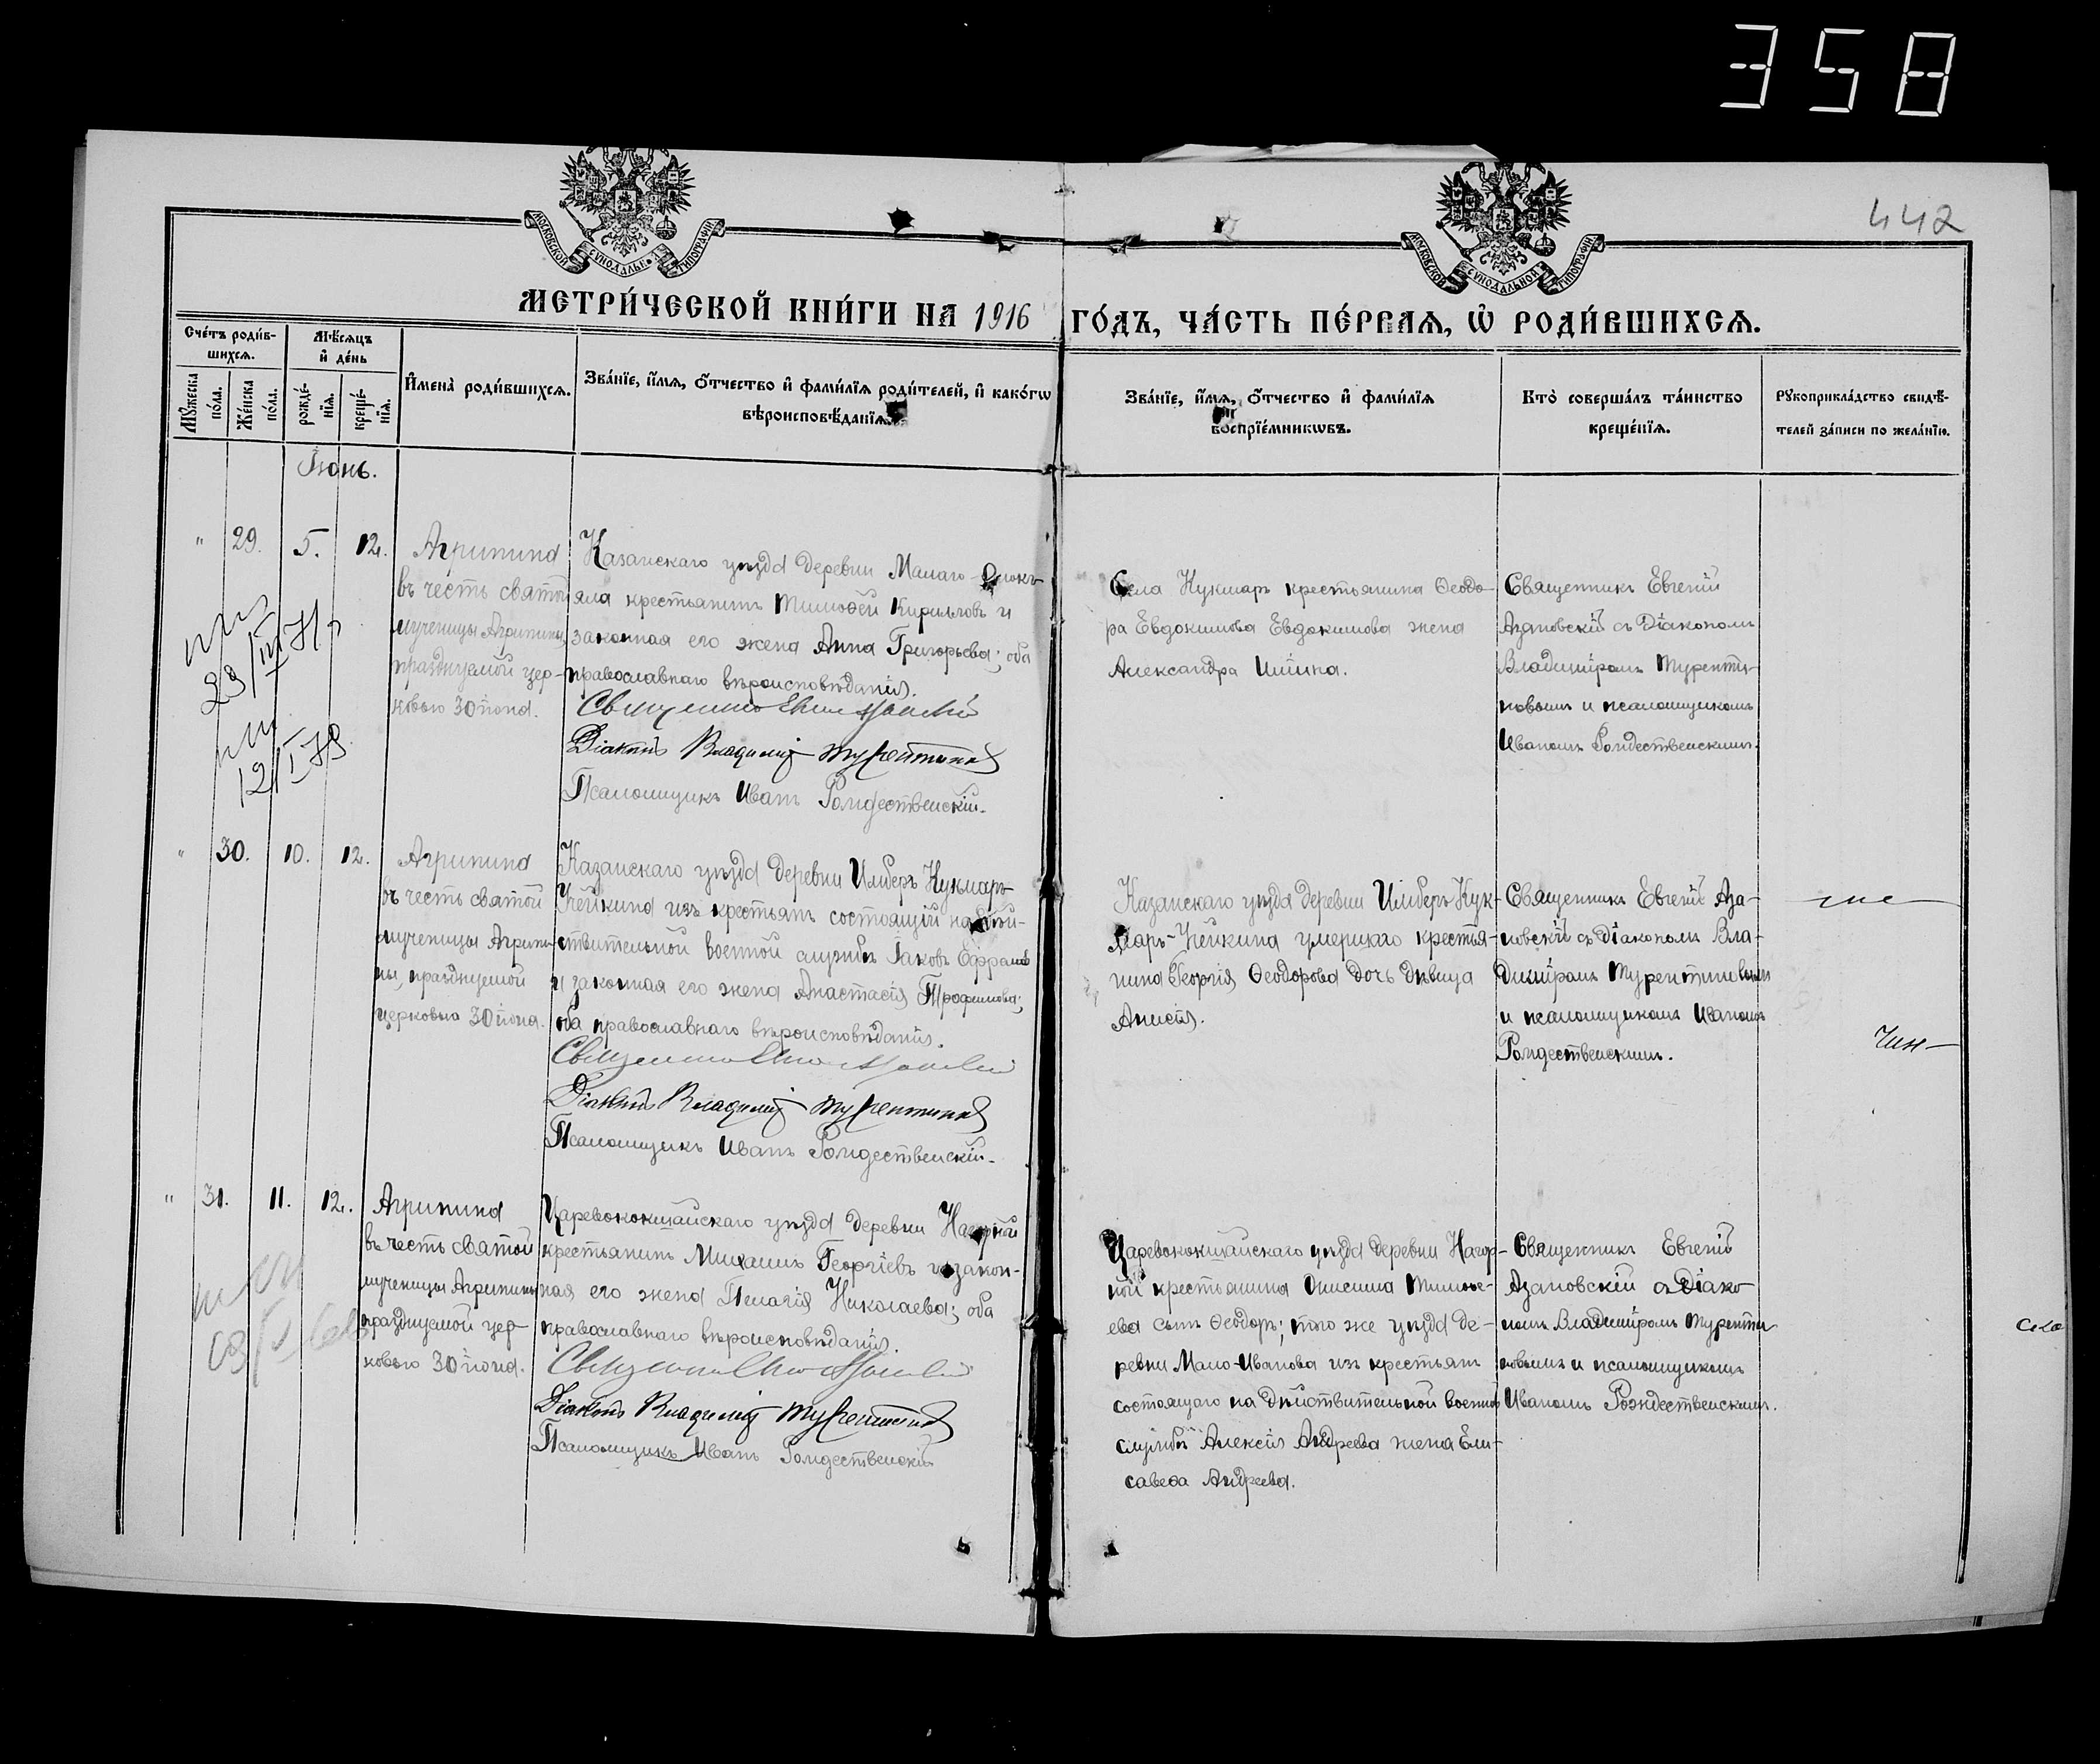 358
442
МОСКОВСКОЙ СѴНОДАЛЬНОЙ ТИПОГРАФІИ
МОСКОВСКОЙ СѴНОДАЛЬНОЙ ТИПОГРАФІИ
МЕТРИ́ЧЕСКОЙ КНИ́ГИ НА 1916 ГО́ДЪ, ЧА́СТЬ ПЕ́РВАѦ, Ѡ҆ РОДИ́ВШИХСѦ.
Сче́тъ роди́в-
шихсѧ.
Мѣ́сѧцъ
и҆ де́нь
Мꙋ́жеска
по́ла.
Же́нска
по́ла.
рожде́-
нїѧ.
креще́-
нїѧ.
И҆мена̀ роди́вшихсѧ.
Зва́нїе, и҆́мѧ, ѻ҆́тчество и҆ фами́лїѧ роди́телей, и҆ како́гѡ
вѣроисповѣ́данїѧ.
Зва́нїе, и҆́мѧ, ѻ҆́тчество и҆ фами́лїѧ
воспрїе́мникѡвъ.
Кто̀ соверша́лъ та́инство
креще́нїѧ.
Рꙋкоприкла́дство свидѣ́-
телей за́писи по жела́нїю.
Іюнь.
" 29. 5. 12.
Агрипина
въ честь святой
мученицы Агрипины,
празднуемой цер-
ковью 30 іюня.
Казанскаго уѣзда деревни Малаго
яла крестьянинъ Тимоѳей Кириловъ и
законная его жена Анна Григорьева; оба
православнаго вѣроисповѣданія.
Діаконъ Владимір Турентинов
Псаломщикъ Иванъ Рождественскій.
Села Кукмаръ крестьянина Ѳеодо-
ра Евдокимова Евдокимова жена
Александра Ильина.
Священникъ Евгеній
Азановскій съ Діакономъ
Владиміромъ Туренти-
новымъ и псаломщикомъ
Иваномъ Рождественскимъ.
23/III 71 г
12/I-73
" 30. 10. 12.
Агрипина
въ честь святой
мученицы Агрипи-
ны, празднуемой
церковью 30 іюня.
Казанскаго уѣзда деревни Илиберъ Кукмаръ-
Кейкина изъ крестьянъ состоящій на дѣй-
ствительной военной службѣ Іаковъ Ефрамовъ
и законная его жена Анастасія Трофимова;
оба православнаго вѣроисповѣданія.
Діаконъ Владимір Турентинов
Псаломщикъ Иванъ Рождественскій.
Казанскаго уѣзда деревни Илиберъ-Кук-
маръ-Кейкина умершаго крестья-
нина Георгія Ѳеодорова дочь дѣвица
Анисія.
Священникъ Евгеній Аза-
новскій съ діакономъ Вла-
диміромъ Турентиновымъ
и псаломщикомъ Иваномъ
Рождественскимъ.
" 31. 11. 12.
Агрипина
въ честь святой
мученицы Агрипины
празднуемой цер-
ковью 30 іюня.
Царевококшайскаго уѣзда деревни Нагорной
крестьянинъ Михаилъ Георгіевъ и закон-
ная его жена Пелагія Николаева; оба
православнаго вѣроисповѣданія.
Діаконъ Владимір Турентинов
Псаломщикъ Иванъ Рождественскій
Царевококшайскаго уѣзда деревни Нагор-
ной крестьянина Онисима Тимоѳе-
ева сынъ Ѳеодоръ; того же уѣзда де-
ревни Мало-Иванова изъ крестьянъ
состоящаго на дѣйствительной военной
службѣ Алексія Андреева жена Ели-
савеѳа Андреева.
Священникъ Евгеній
Азановскій съ Діако-
номъ Владиміромъ Туренти-
новымъ и псаломщикомъ
Иваномъ Рождественскимъ.